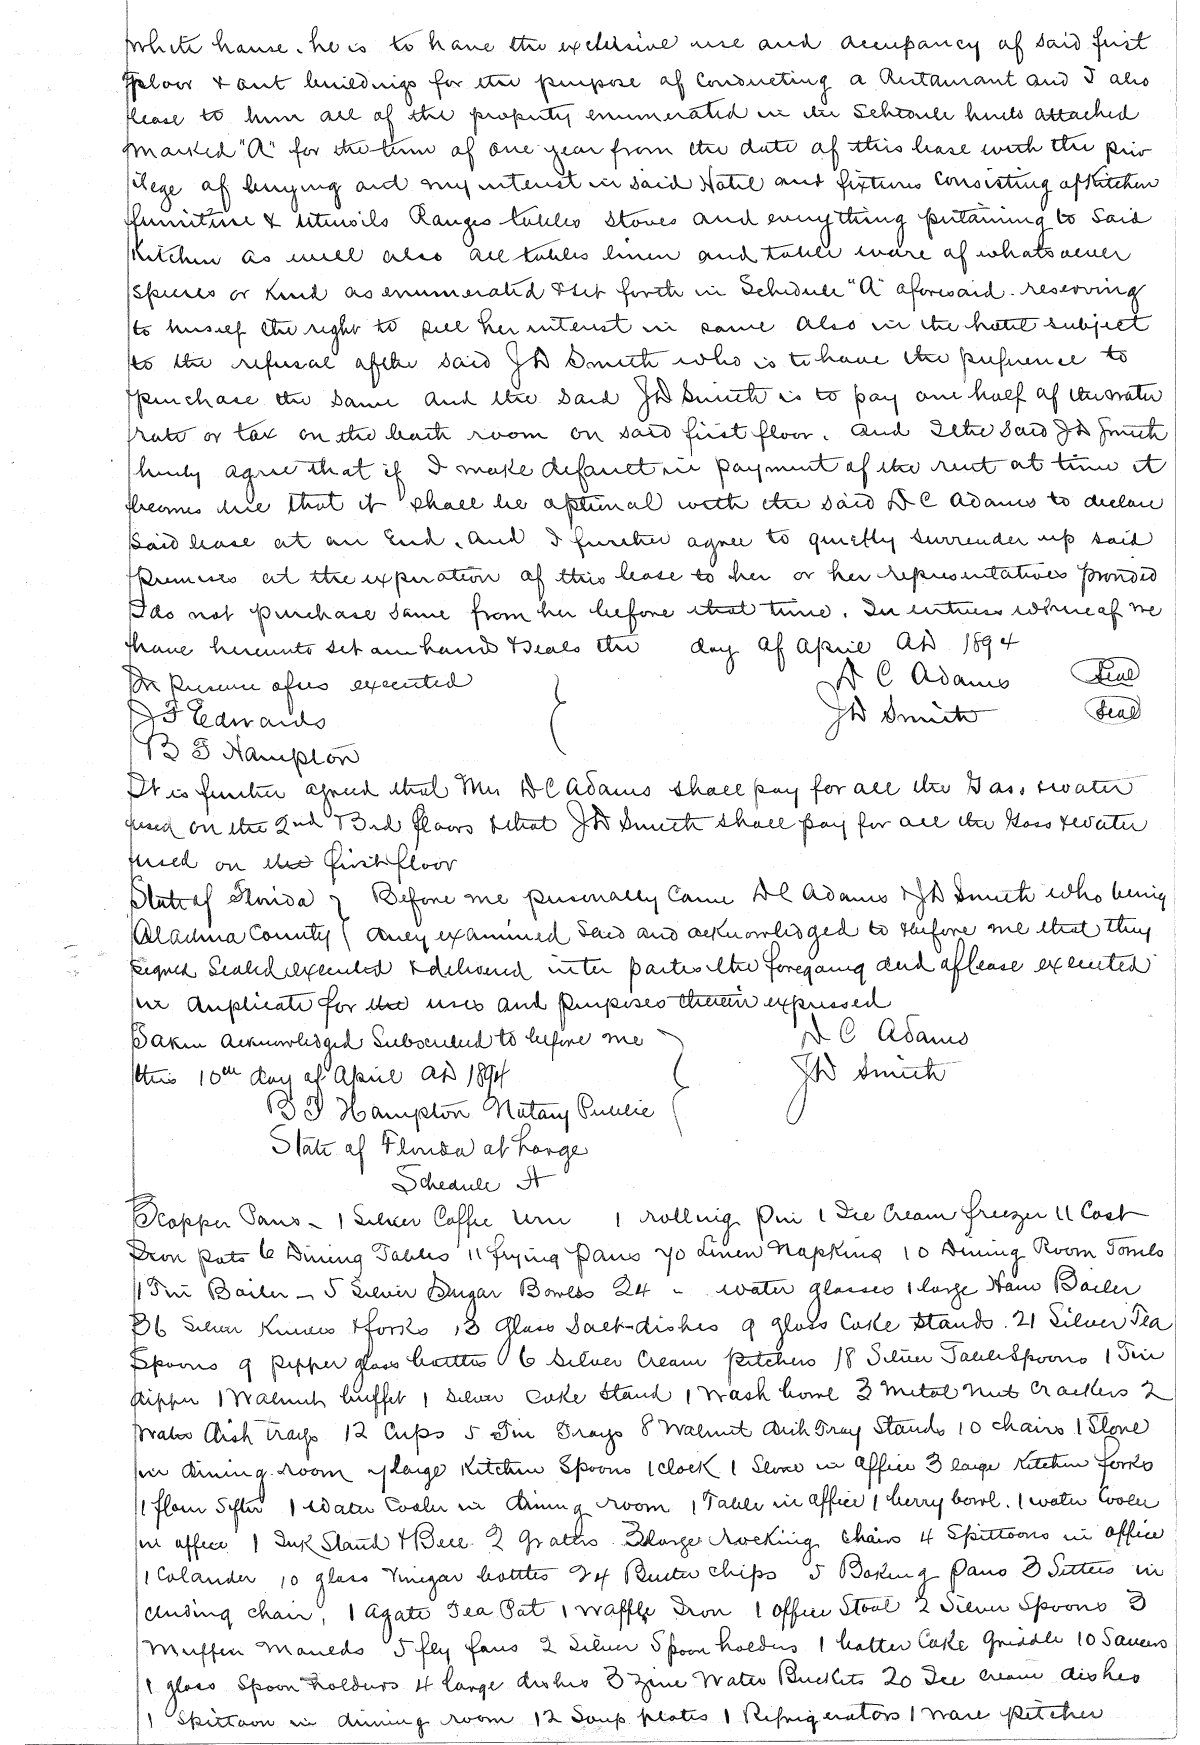 White house. he is to have the exclusive use and occupancy of said first
floor & out buildings for the purpose of conducting a Restaurant and I also
lease to him all of the property enumerated in the Schedule hereto attached
marked "A" for the term of one year from the date of this lease with the priv
ilege of buying out my interest in said Hotel and fixtures Consisting of Kitchen
furniture & utensils Ranges tables stoves and everything pertaining to said
Kitchen as well also all tables linen and table ware of whatsoever
species or kind as enumerated & set forth in Schedule "A" aforesaid. reserving
to herself the right to sell her interest in same also in the hotel subject
to the refusal of the said J D Smith who is to have the preference to
purchase the same and the said J D Smith is to pay one half of the water
rate or tax on the bath room on said first floor. And I the said J D Smith
hereby agree that if I make default in payment of the rent at time it
becomes due that it shall be optional with the said D C Adams to declare
said lease at an End. And I further agree to quietly surrender up said
premises at the expiration of this lease to her or her representatives provided
I do not purchase same from her before that time. In witness whereof we
have hereunto set our hands & seals the day of April AD 1894
In presence of us executed D C Adams Seal
J F Edwards J D Smith Seal
B F Hampton
It is further agreed that Mrs D C Adams shall pay for all the Gas & water
used on the 2nd & 3rd floors & that J D Smith shall pay for all the Gass & Water
used on the first floor
State of Florida } Before me personally Came D C Adams & J D Smith who being
Alachua County { duly examined Said and acknowledged to & before me that they
signed Sealed executed & delivered inter partes the foregoing deed of lease executed
in duplicate for the uses and purposes therein expressed
Taken acknowledged Subscribed to before me D C Adams
this 10th day of April AD 1894 J D Smith
B F Hampton Notary Public
State of Florida at Large
Schedule A
3 copper Pans - 1 Silver Coffee Urn 1 rolling Pin 1 Ice Cream freezer 11 Cast
Iron pots 6 Dining Tables 11 frying Pans 70 Linen Napkins 10 Dining Room Towels
1 Tin Boiler - 5 Silver Sugar Bowls 24 - water glasses 1 large Ham Boiler
36 Silver Knives & forks 13 Glass Salt-dishes 9 glass Cake Stands. 21 Silver Tea
Spoons 9 pepper glass bottles 6 silver Cream pitchers 18 Silver Table Spoons 1 Tin
dipper 1 Walnut buffet 1 silver Cake Stand 1 Wash bowl 3 Metal Nut Crackers 2
Dish trays 12 Cups 5 Tin Trays 8 Walnut Dish Tray Stands 10 chairs 1 Stove
in dining room 4 large Kitchen Spoons 1 clock 1 Stove in office 3 large Kitchen forks
1 flour Sifter 1 Water Cooler in dining room 1 Table in office 1 berry bowl. 1 water Cooler
in office 1 Ink Stand & Bell 2 Grates 3 large rocking chairs 4 Spittoons in office
1 Colander 10 glass Vinegar bottles 24 Butter chips 5 Baking Pans 3 Settees in
cluding chair, 1 Agate Tea Pot 1 Waffle Iron 1 office Stool 2 Silver Spoons 3
Muffin Moulds 5 fly fans 2 Silver Spoon holders 1 batter Cake Griddle 10 Saucers
1 glass Spoon holders 4 large dishes 3 zinc Water Buckets 20 Ice cream dishes
1 Spittoon in dining room 12 Soup plates 1 Refrigerators 1 ware pitcher